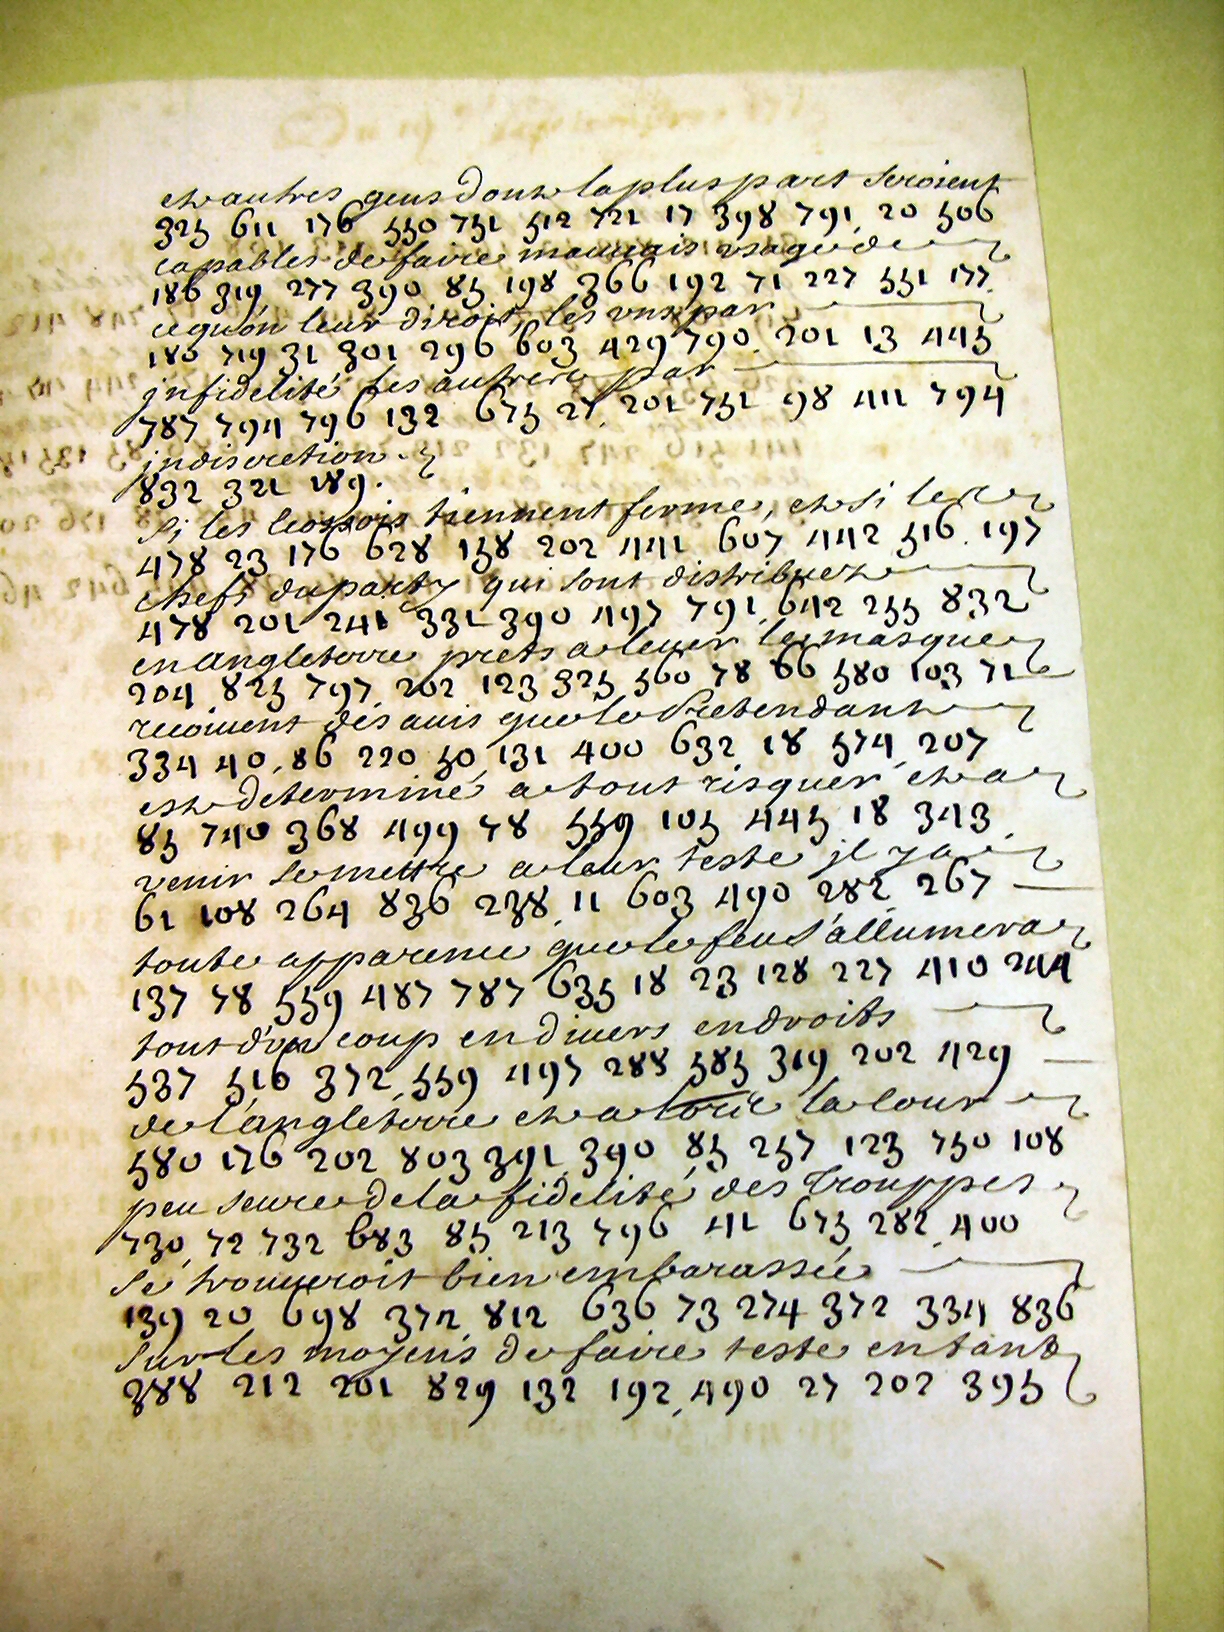 et autres gens dont la plus part seroient
325 611 176 550 751 512 721 17 398 791 20 506
capables de faire mauuais usage de
186 319 277 390 85 198 366 192 71 227 551 177
ce qu'on leur diroit, les uns par
180 719 31 301 296 603 429 790 201 13 445
infidelité les autres par
787 794 796 132 675 27 201 751 98 411 794
indiscretion.
832 321 189.
Si les ecossois tiennent ferme, et si les
478 23 176 628 158 202 441 607 442 516 197
chefs du party qui sont distribuez
478 201 241 331 390 497 791 642 255 832
en angleterre prets a leuer le masque
204 825 797 202 123 325 560 78 66 580 103 71
recoiuent des auis que le Pretendant
334 40 86 220 50 131 400 632 18 574 207
est determiné a tout risquer et a
85 740 368 499 78 559 105 445 18 343
venir se mettre a leur teste il y a
61 108 264 836 238 11 603 490 282 267
toute apparence que le feu s'allumera
137 78 559 487 787 635 18 23 128 227 410 244
tout d'un coup en diuers endroits
537 516 372 559 497 288 585 319 202 429
de l'angleterre et a la cour
580 176 202 803 391 390 85 257 123 750 108
peu seure de la fidelité des trouppes
730 72 732 683 85 213 796 41 675 282 400
se trouueroit bien embarassée
139 20 698 372 812 636 73 274 372 334 836
sur les moyens de faire teste en tant
288 212 201 829 132 192 490 27 202 395